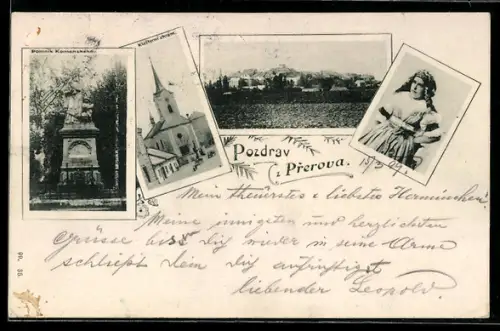 Pomník Komenského.
Klášterní chrám.
Pozdrav
z Přerova.
15/5 99.
Mein theuerstes u liebstes Herminchen!
Meine innigsten und herzlichsten
Grüsse biss Dich wieder in seine Arme
schließt Dein Dich aufrichtigst
liebender Leopold.